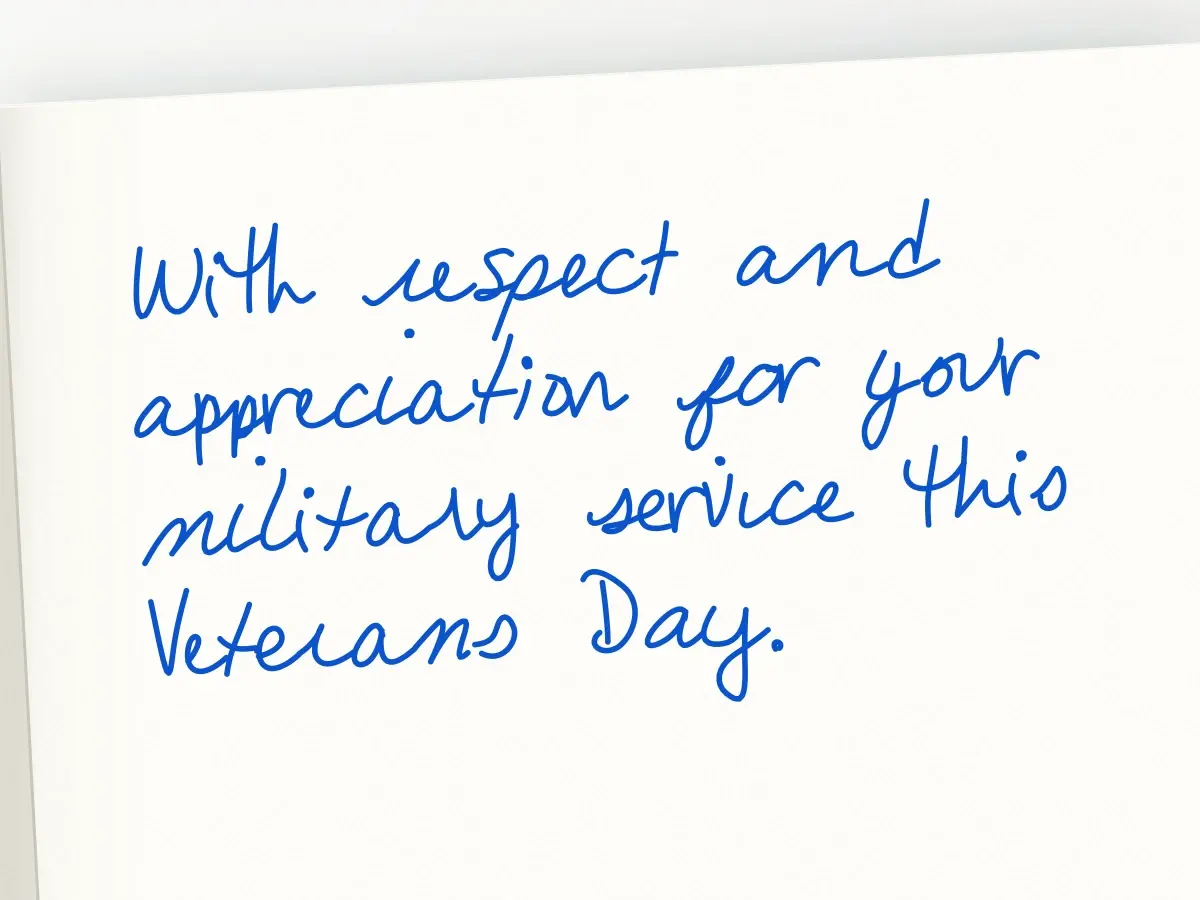 With respect and
appreciation for your
military service this
Veterans Day.